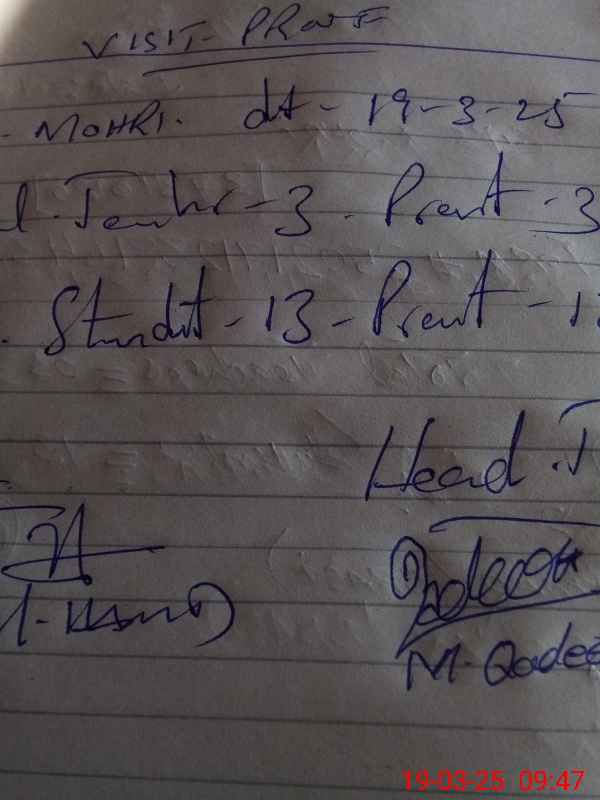 VISIT PROOF
- MOHRI. dt - 19-3-25
l. Teacher - 3 . Present - 3
. Student - 13 - Present - 1
Head . T
M. Qadee
19-03-25 09:47